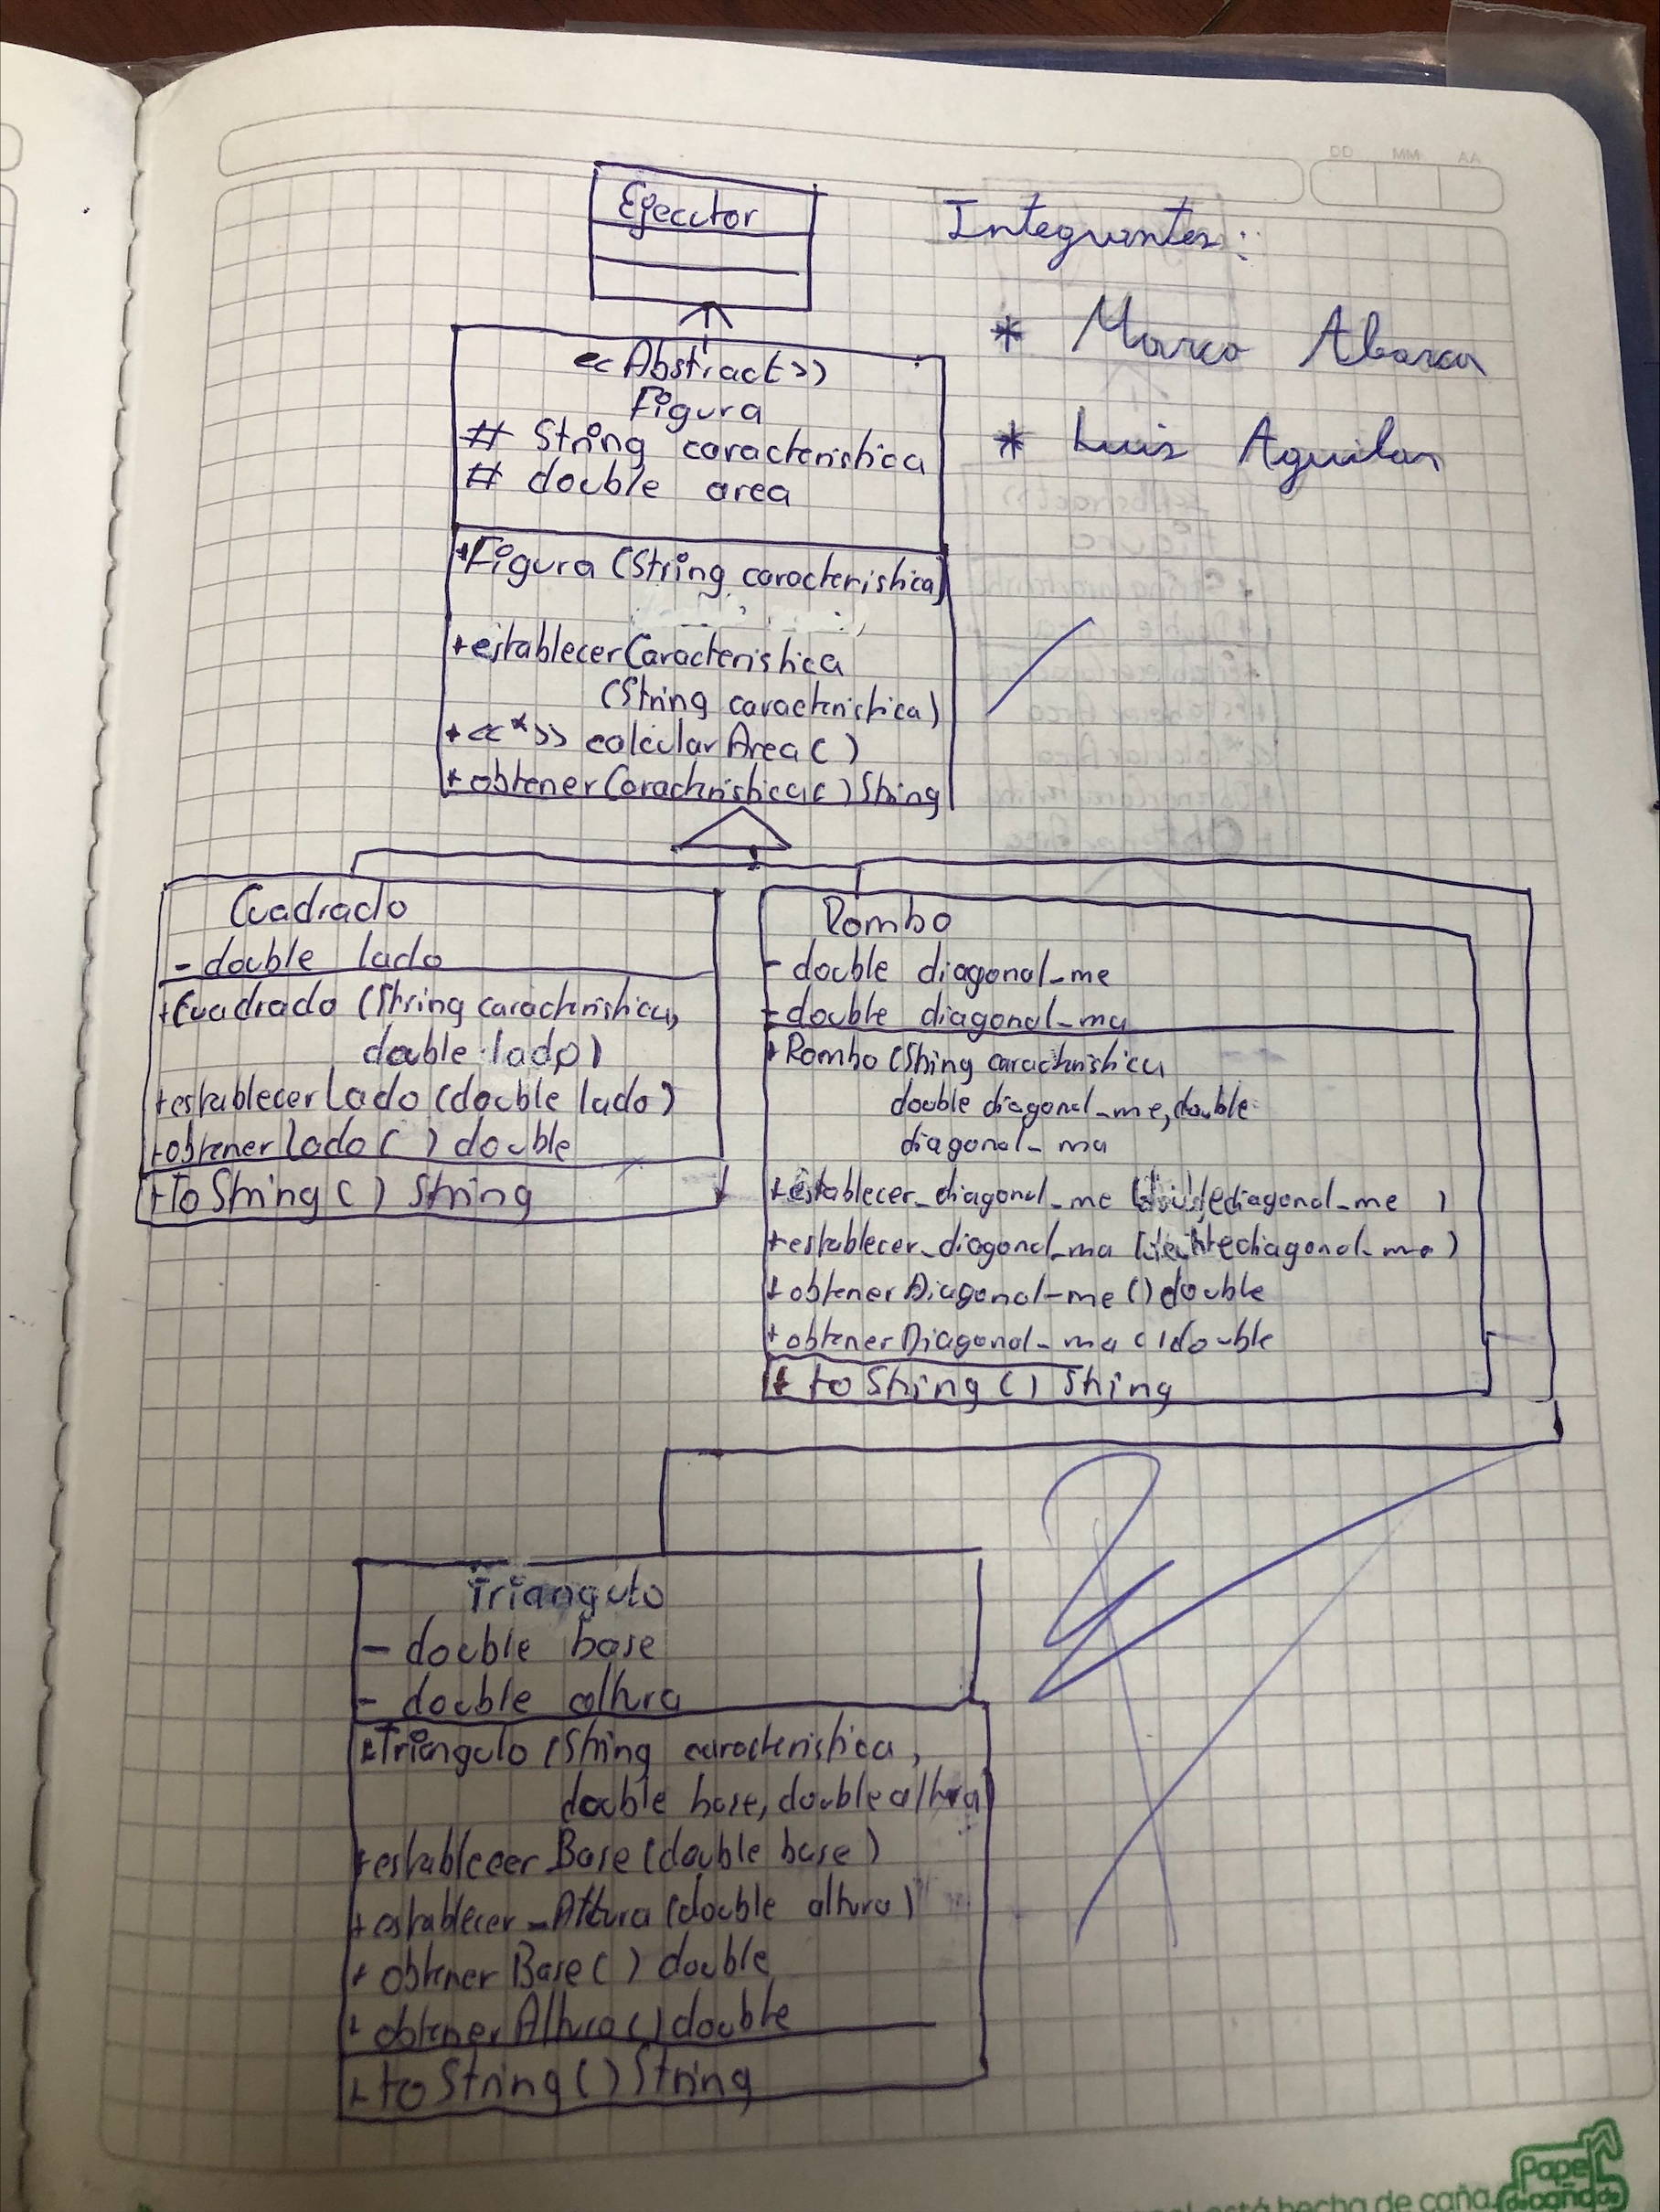 DD MM AA
Ejecutor
Integrantes:
* Marco Abarca
* Luis Aguilar
<<Abstract>>
Figura
# String caracteristica
# double area
+Figura (String caracteristica)
+establecerCaracteristica
(String caracteristica)
+<<*>> calcularArea( )
+obtenerCaracteristica( ) String
Cuadrado
- double lado
+Cuadrado (String caracteristica,
double lado)
+establecerLado (double lado)
+obtenerLado ( ) double
+ToString ( ) String
Rombo
- double diagonal_me
- double diagonal_ma
+Rombo (String caracteristica
double diagonal_me, double
diagonal_ma
+establecer_diagonal_me ( diagonal_me )
+establecer_diagonal_ma ( diagonal_ma )
+obtenerDiagonal_me () double
+obtenerDiagonal_ma () double
+ toString ( ) String
Triangulo
- double base
- double altura
+Triangulo (String caracteristica,
double base, double altura)
+establecer Base (double base)
+establecer_Altura (double altura)
+ obtener Base ( ) double
+ obtener Altura ( ) double
+ toString ( ) String
Papel
está hecha de caña